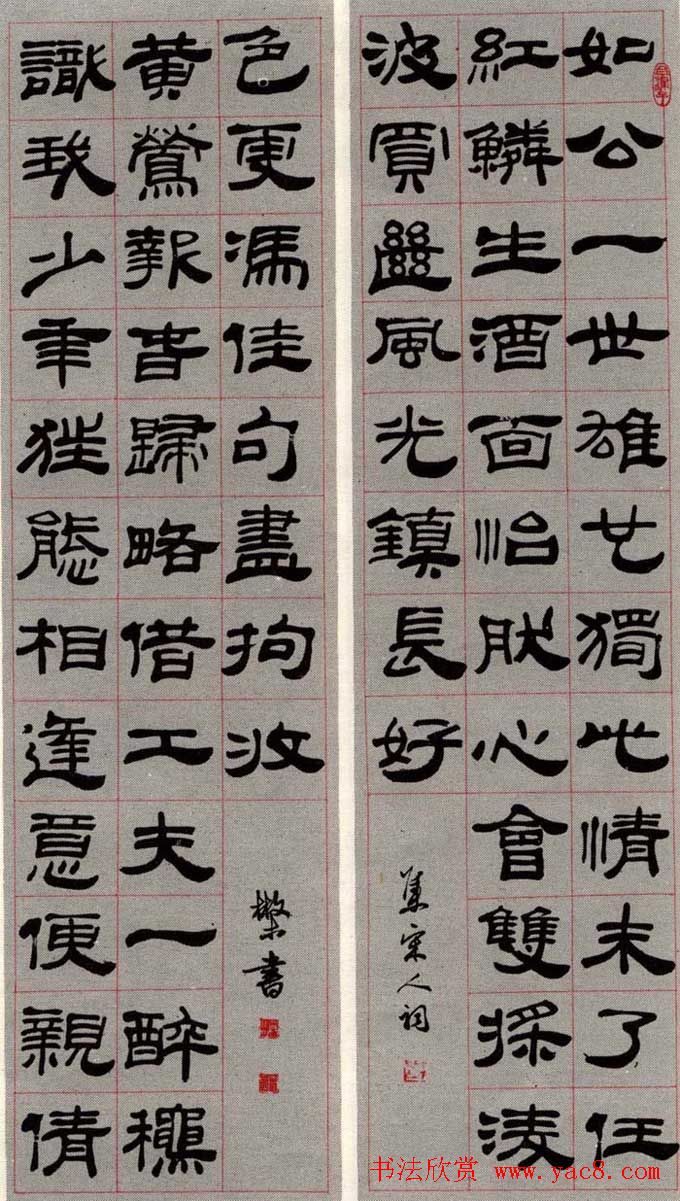 如公一世雄才獨此情未了任
紅鱗生酒面怡然心會雙採凌
波買斷風光鎮長好
集宋人詞
識我少年狂態相逢意便親倩
黃鶯報春歸略借工夫一醉穠
色更馮佳句盡拘收
散木書
书法欣赏 www.yac8.com